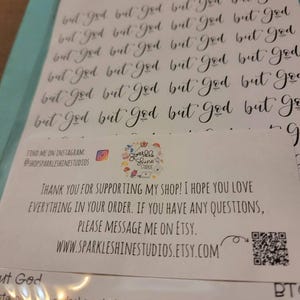 but God but God but God
but God but God but God but God
but God but God but God but God
but God but God but God but God
but God but God but God but God
but God but God but God
but God
FIND ME ON INSTAGRAM:
@SHOPSPARKLESHINESTUDIOS
Sparkle
Shine
THANK YOU FOR SUPPORTING MY SHOP! I HOPE YOU LOVE
EVERYTHING IN YOUR ORDER. IF YOU HAVE ANY QUESTIONS,
PLEASE MESSAGE ME ON ETSY.
WWW.SPARKLESHINESTUDIOS.ETSY.COM
ut God